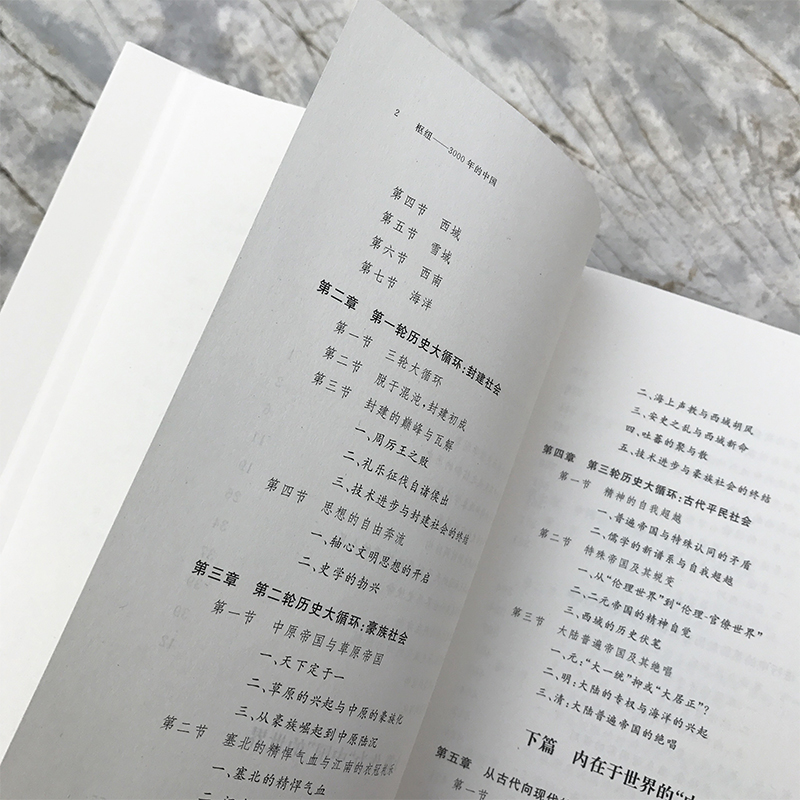 2 枢纽——3000年的中国
第四节 西域
第五节 雪域
第六节 西南
第七节 海洋
第二章 第一轮历史大循环:封建社会
第一节 三轮大循环
第二节 脱于混沌,封建初成
第三节 封建的巅峰与瓦解
一、周厉王之败
二、礼乐征伐自诸侯出
三、技术进步与封建社会的终结
第四节 思想的自由奔流
一、轴心文明思想的开启
二、史学的勃兴
第三章 第二轮历史大循环:豪族社会
第一节 中原帝国与草原帝国
一、天下定于一
二、草原的兴起与中原的豪族化
三、从豪族崛起到中原陆沉
第二节 塞北的精悍气血与江南的衣冠礼乐
一、塞北的精悍气血
二、海上声教与西域胡风
三、安史之乱与西域新命
四、吐蕃的聚与散
五、技术进步与豪族社会的终结
第四章 第三轮历史大循环:古代平民社会
第一节 精神的自我超越
一、普遍帝国与特殊认同的矛盾
二、儒学的新谱系与自我超越
第二节 特殊帝国及其蜕变
一、从“伦理世界”到“伦理·官僚世界”
二、二元帝国的精神自觉
三、西域的历史伏笔
第三节 大陆普遍帝国及其绝唱
一、元:“大一统”抑或“大居正”?
二、明:大陆的专权与海洋的兴起
三、清:大陆普遍帝国的绝唱
下篇 内在于世界的“中
第五章 从古代向现代
第一节